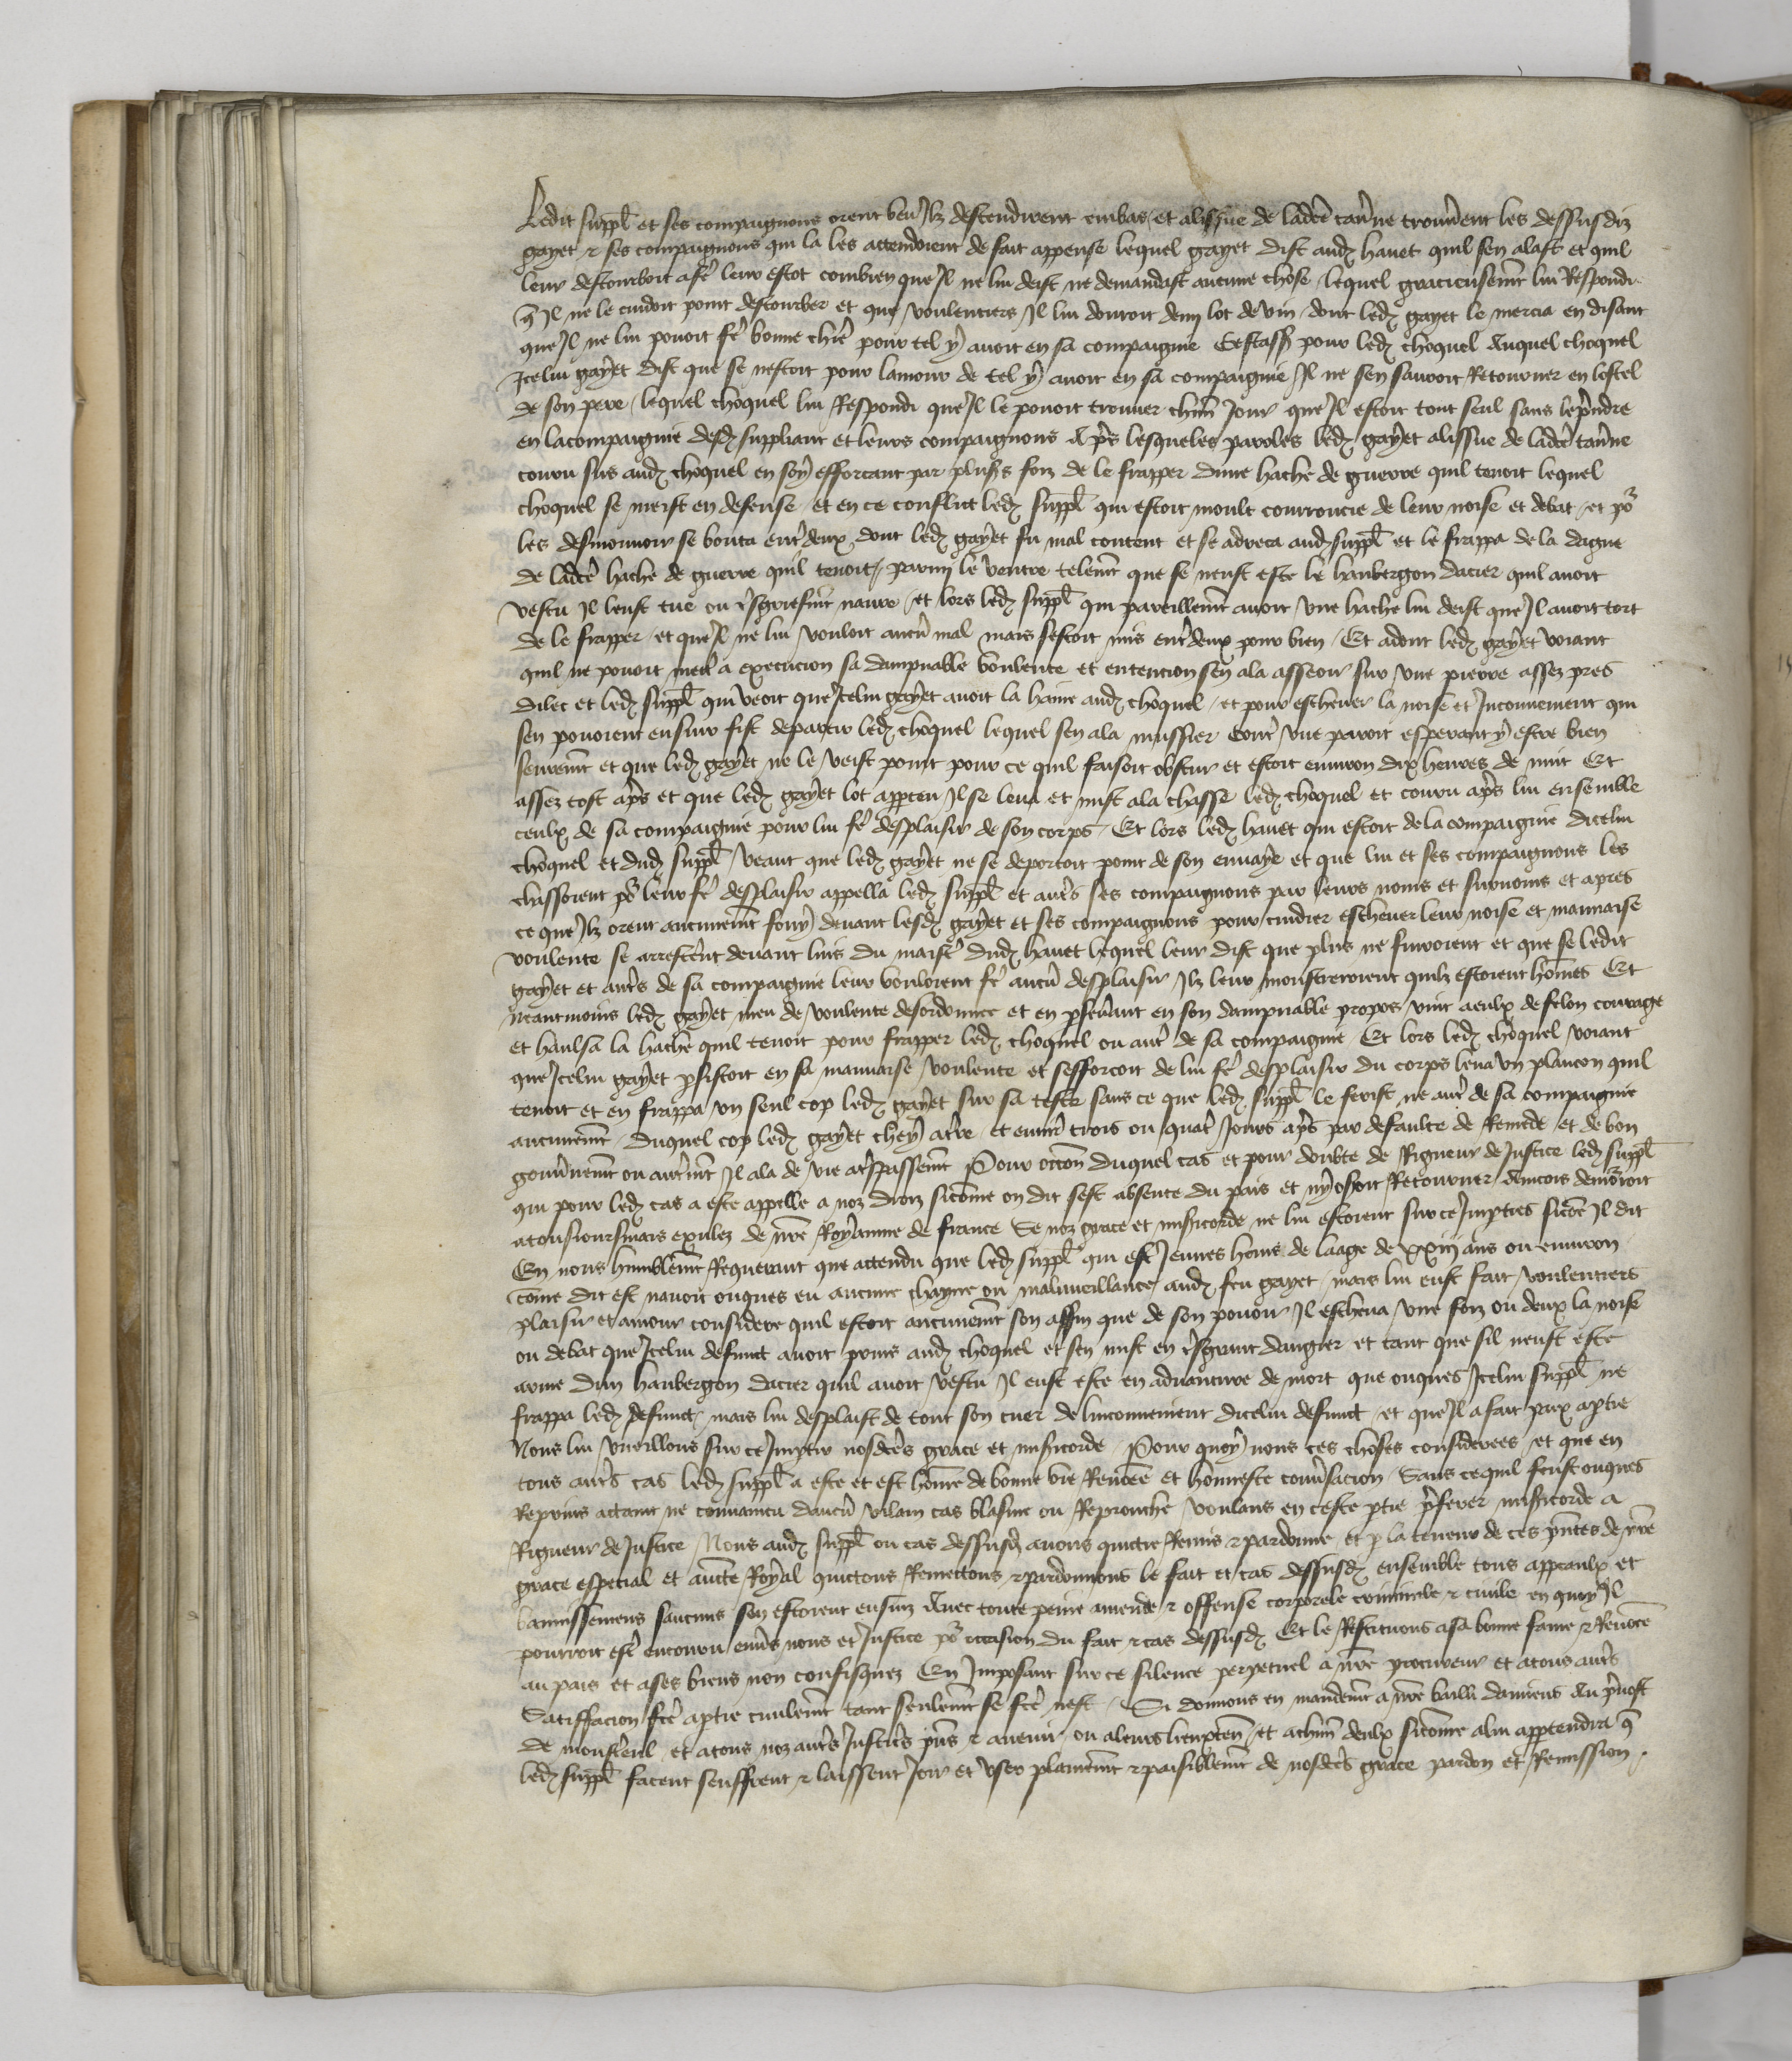 Ledit suppl̄ et ses compaignons orent beu Ilz descendirent embas / et alissue de ladcē tau̓ne trouue̓ent les dessusdiz
gayet ⁊ ses compaignons qui la les attendoient de fait appense lequel gayet dist aud hauet quil sen alast et quil
leur destourboit affē leur escot combien que Il ne lui deist ne demandast aucune chose / lequel gracieusemt̄ lui Respondi
q̄ Il ne le cuidoit point destourber et que voulentiers Il lui donroit demj lot de vin / dont led gayet le mercia en disant
que Il ne lui pouoit fē bonne chiē pour tel y auoit en sa compaignie Cestass̄ pour led choquel Auquel choquel
Icelui gayet dist que se nestoit pour lamour de tel y auoit en sa compaignie Il ne sen sauroit Retourner en lostel
de son pere / lequel choquel lui Respondi que Il le pouoit trouuer chūn Jour que Il estoit tout seul sans lep̄ndre
en lacompaignie desd suppliant et leurs compaignons Ap̄s lesqueles paroles led gayet alissue de ladcē tau̓ne
couru sus aud choquel en soy efforcant par plus̄s foiz de le frapper dune hache de guerre quil tenoit lequel
choquel se meist en defense / et en ce conflict led suppl̄ qui estoit moult courroucie de leur noise et debat / et po̓
les desmouuoir se bouta ent̓deux dont led gayet fu mal content et se adreca aud suppl̄ et le frappa de la dague
de ladcē hache de guerre quil tenoit / parmy le ventre telemt̄ que se neust este le haubergon dacier quil auoit
vestu Il leust tue ou t̓sgriefmt̄ naure / et lors led suppl̄ qui pareillemt̄ auoit vne hache lui deist que Il auoit tort
de le frapper / et que Il ne lui vouloit aucū mal mais sestoit mis ent̓deux pour bien / Et adont led gayet voiant
quil ne pouoit mett̓ a execucion sa dampnable voulente et entencion sen ala asseoir sur vne pierre assez pres
dilec et led suppl̄ qui veoit que Icelui gayet auoit la haine aud choquel / et pour escheuer la noise et Inconuenient qui
sen pouoient ensuir fist departir led choquel lequel sen ala mussier cont̓ vne paroit esperant y estre bien
seuremt̄ et que led gayet ne le veist point pour ce quil faisoit obscur et estoit enuiron dix heures de nuit Et
assez tost ap̄s et que led gayet lot apperceu Il se leua et mist ala chasse led choquel et couru ap̄s lui ensemble
ceulx de sa compaignie pour lui fē desplaisir de son corps / Et lors led hauet qui estoit de la compaignie dicelui
choquel et dud suppl̄ veant que led gayet ne se deportoit point de son enuaye et que lui et ses compaignons les
chassoient po̓ leur fē desplaisir appella led suppl̄ et aut̓s ses compaignons par leurs noms et surnoms et apres
ce que Ilz orent aucunemt̄ fouy deuant lesd gayet et ses compaignons pour cuidier escheuer leur noise et mauuaise
voulente se arreste̓ent deuant luis du maist̓ dud hauet lequel leur dist que plus ne fuiroient et que se ledit
gayet et aut̓s de sa compaignie leur vouloient fē aucū desplaisir Ilz leur monstreroient quilz estoient hōmes Et
neantmoins led gayet meu de voulente desordonnee et en p̱seu̓ant en son dampnable propos vint aeulx de felon courage
et haulsa la hache quil tenoit pour frapper led choquel ou aut̓ de sa compaignie Et lors led choquel voiant
que Icelui gayet p̱sistoit en sa mauuaise voulente et sefforcoit de lui fē desplaisir du corps leua vn plancon quil
tenoit et en frappa vn seul cop led gayet sur sa teste sans ce que led suppl̄ le ferist ne aut̓ de sa compaignie
aucunemt̄ / duquel cop led gayet chey at̓re / et enuirō trois ou quat̓ Jours ap̄s par defaulte de Remede / et de bon
gouu̓nemt̄ ou aut̓mt̄ Il ala de vie at̓spassemt̄ Pour occōn duquel cas et pour doubte de Rigueur de Justice led suppl̄
qui pour led cas a este appelle a noz droiz sicōme on dit sest absente du pais et ny oseroit Retourner Aincois demo̓roit
atousioursmais exulez de nr̄e Royaume de france Se noz grace et misicorde ne lui estoient sur ce Imp̱ties sicōe Il dit
En nous humblemt̄ Requerant que attendu que led suppl̄ qui est Jeunes homs de laage de xxiij ans ou enuiron
cōme dit est nauoit onques eu aucune hayne ou malueillance aud feu gayet / mais lui eust fait voulentiers
plaisir et amour considere quil estoit aucunemt̄ son affin que de son pouoir Il escheua vne foiz ou deux la noise
ou debat que Icelui defunct auoit prins aud choquel et sen mist en t̓sgrant dangier et tant que sil neust este
arme dun haubergon dacier quil auoit vestu Il eust este en aduenture de mort que onques Icelui suppl̄ ne
frappa led defunct / mais lui desplaist de tout son cuer de linconuenient dicelui defunct / et que Il a fait paix ap̱tie
Nous lui vueillons sur ce Imp̱tir nosdcēs grace et misicorde / Pour quoy nous ces choses considerees / et que en
tous aut̓s cas led suppl̄ a este et est hōme de bonne vie Renōmee et honneste conu̓sacion / Sans cequil feust onques
Reprins attaint ne conuaincu daucū vilain cas blasme ou Reprouche voulans en ceste p̱tie p̄ferer misicorde a
Rigueur de Justice / Nous aud suppl̄ ou cas dessusd auons quictie Remis ⁊ pardonne / et p̱ la teneur de ces p̄ntes de nr̄e
grace especial et auctē Royal quictons Remettons ⁊ pardonnons le fait et cas dessusd ensemble tous appeaulx et
bannissemens saucuns sen estoient ensuiz Auec toute peine amende ⁊ offense corporele criminele ⁊ ciuile en quoy Il
pourroit est̓ encouru enu̓s nous et Justice po̓ occasion du fait ⁊ cas dessusd / Et le Restituons asa bonne fame ⁊ Renōmee
au pais et ases biens non confisquez En Imposant sur ce silence perpetuel a nr̄e procureur et atous aut̓s
Satisfacion fcē ap̱tie ciuilemt̄ tant seulemt̄ se fcē nest / Si donnons en mandemt̄ a nr̄e bailli damiens Au p̄uost
de monstereul / et atous noz aut̓s Justic̓s p̄ns ⁊ auenir / ou aleurs lieuxten̄ / et achūn deulx sicōme alui app̱tendra q̄
led suppl̄ facent seuffrent ⁊ laissent Joir et vser plainemt̄ ⁊ paisiblemt̄ de nosdcēs grace pardon et Remission /